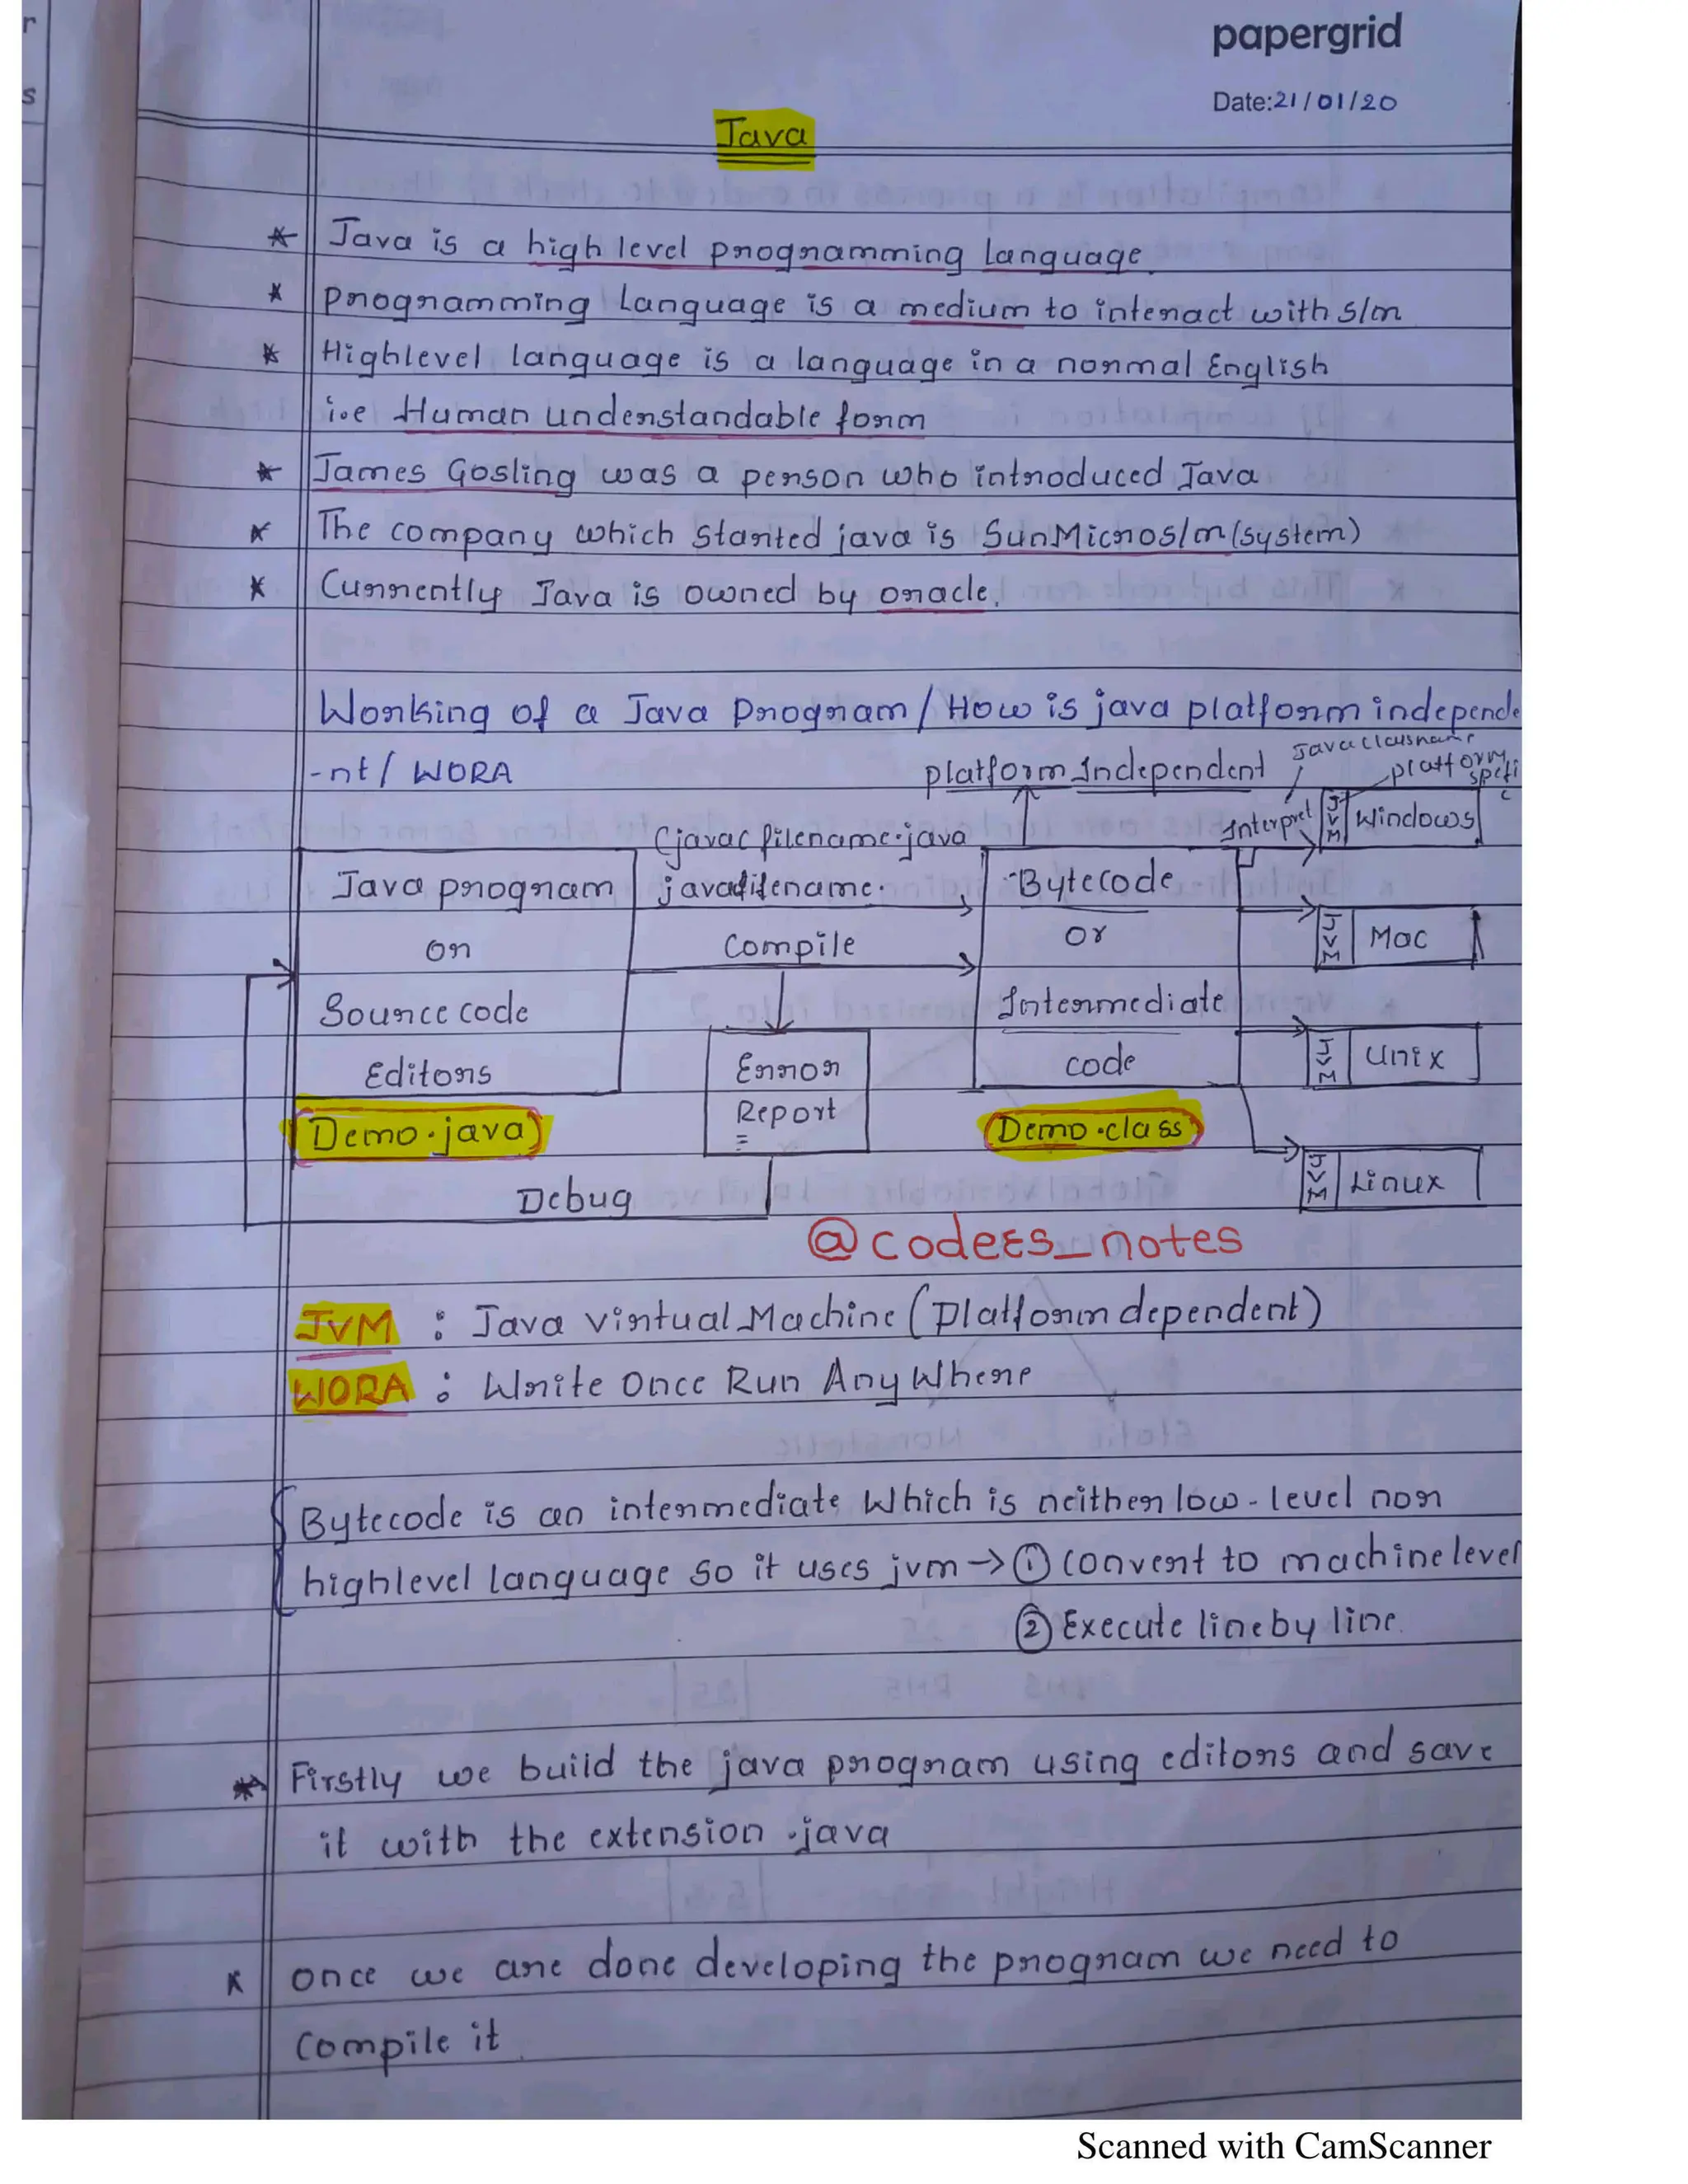 r
s
papergrid
Date:21/01/20
Java
* Java is a high level programming language.
* programming Language is a medium to interact with s/m
* Highlevel language is a language in a normal English
i.e Human understandable form
* James Gosling was a person who introduced Java
* The company which started java is SunMicros/m (system)
* Currently Java is owned by oracle.
Working of a Java program / How is java platform independe
-nt / WORA
platform Independent
Java classname
platform
specifi
c
(javac filename.java
Interpret
JVM Windows
Java program
javafilename.
Bytecode
or
compile
or
JVM Mac
Source code
Intermediate
Editors
Error
code
JVM Unix
Report
=
Demo.java
Demo.class
Debug
JVM Linux
@codees_notes
JVM : Java Virtual Machine (platform dependent)
WORA : Write Once Run AnyWhere
Bytecode is an intermediate which is neither low-level nor
highlevel language so it uses jvm → ① convert to machine level
② Execute line by line.
* Firstly we build the java program using editors and save
it with the extension .java
* once we are done developing the program we need to
compile it.
Scanned with CamScanner